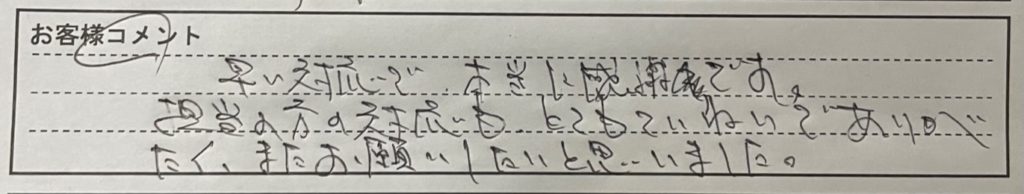 お客様コメント
早い対応で、本当に感謝です。
担当の方の対応も、とてもていねいでありが
たく、またお願いしたいと思いました。